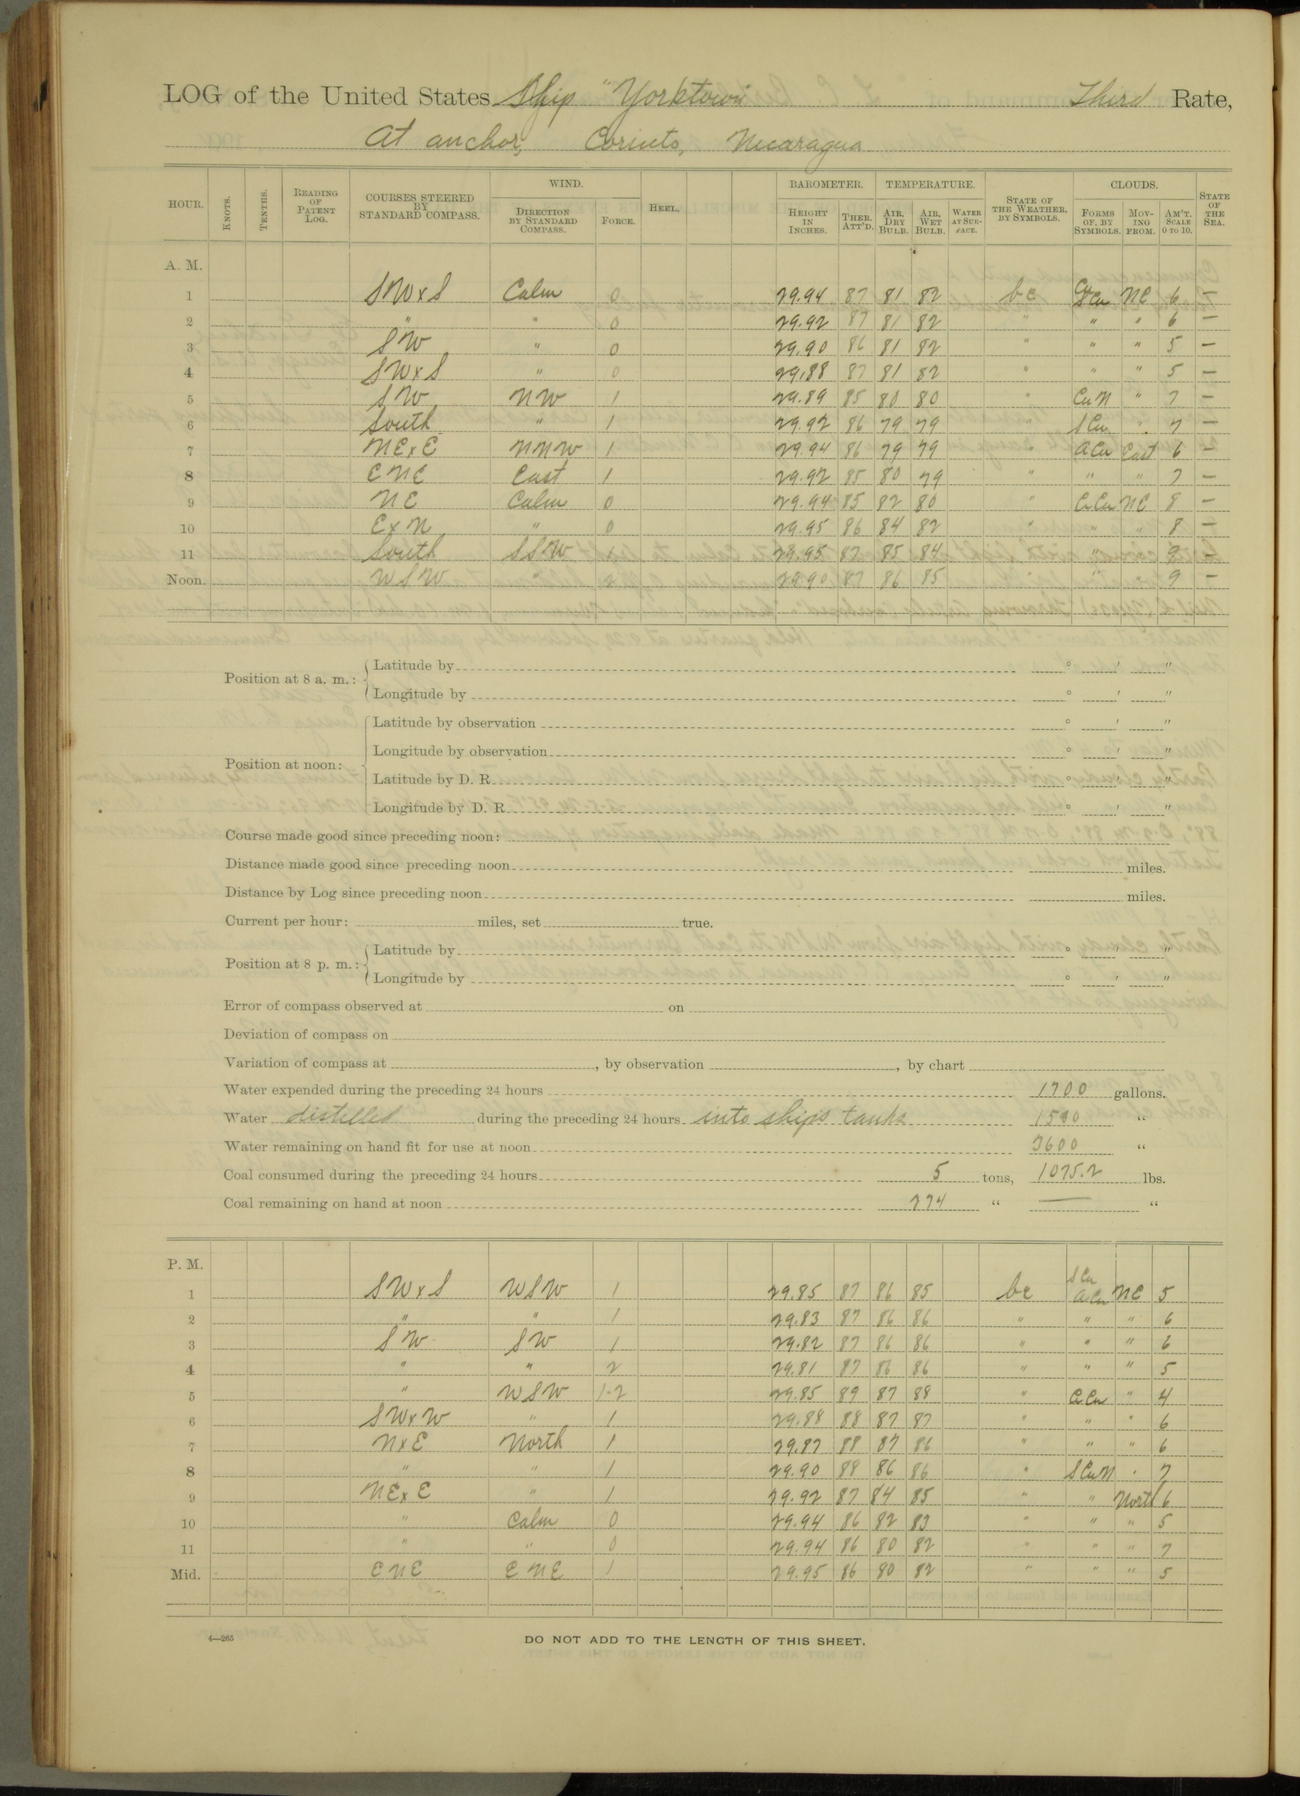 LOG of the United States Ship "Yorktown" Third Rate,
At anchor, Corinto, Nicaragua
HOUR. KNOTS. TENTHS. READING OF PATENT LOG. COURSES STEERED BY STANDARD COMPASS. WIND. DIRECTION BY STANDARD COMPASS. FORCE. HEEL. BAROMETER. HEIGHT IN INCHES. THER. ATT'D. TEMPERATURE. AIR, DRY BULB. AIR, WET BULB. WATER AT SUR-FACE. STATE OF THE WEATHER, BY SYMBOLS. CLOUDS. FORMS OF, BY SYMBOLS. MOV-ING FROM. AM'T. SCALE 0 TO 10. STATE OF THE SEA.
A. M.
1 SWxS Calm 0 29.94 87 81 82 bc Cu NE 6 —
2 " " 0 29.92 87 81 82 " " " 6 —
3 SW " 0 29.90 86 81 82 " " " 5 —
4 SWxS " 0 29.88 87 81 82 " " " 5 —
5 SW NW 1 29.89 85 80 80 " CuN " 7 —
6 South " 1 29.92 86 79 79 " SCu " 7 —
7 NExE NNW 1 29.94 86 79 79 " ACu East 6 —
8 ENE East 1 29.92 85 80 79 " " " 7 —
9 NE Calm 0 29.94 85 82 80 " CiCu NE 8 —
10 ExN " 0 29.95 86 84 82 " " " 8 —
11 South SSW 1 29.95 87 85 84 " " 9 —
Noon. WSW " 2 29.90 87 86 85 " " 9 —
Position at 8 a. m.: Latitude by ° ' "
Longitude by ° ' "
Position at noon: Latitude by observation ° ' "
Longitude by observation ° ' "
Latitude by D. R. ° ' "
Longitude by D. R. ° ' "
Course made good since preceding noon:
Distance made good since preceding noon miles.
Distance by Log since preceding noon miles.
Current per hour: miles, set true.
Position at 8 p. m.: Latitude by ° ' "
Longitude by ° ' "
Error of compass observed at on
Deviation of compass on
Variation of compass at , by observation , by chart
Water expended during the preceding 24 hours 1700 gallons.
Water distilled during the preceding 24 hours into ships tanks "
Water remaining on hand fit for use at noon 3600 "
Coal consumed during the preceding 24 hours 5 tons, 1075.2 lbs.
Coal remaining on hand at noon 274 " — "
P. M.
1 SWxS WSW 1 29.85 87 86 85 bc SCu ACu NE 5
2 " " 1 29.83 87 86 86 " " " 6
3 SW SW 1 29.82 87 86 86 " " " 6
4 " " 2 29.81 87 86 86 " " " 5
5 " WSW 1-2 29.85 89 87 88 " CiCu " 4
6 SWxW " 1 29.88 88 87 87 " " " 6
7 NxE North 1 29.87 88 87 86 " " " 6
8 " " 1 29.90 88 86 86 " SCuN " 7
9 NExE " 1 29.92 87 84 85 " " North 6
10 " Calm 0 29.94 86 82 83 " " " 5
11 " " 0 29.94 86 80 82 " " " 7
Mid. ENE ENE 1 29.95 86 80 82 " " " 5
4—265
DO NOT ADD TO THE LENGTH OF THIS SHEET.